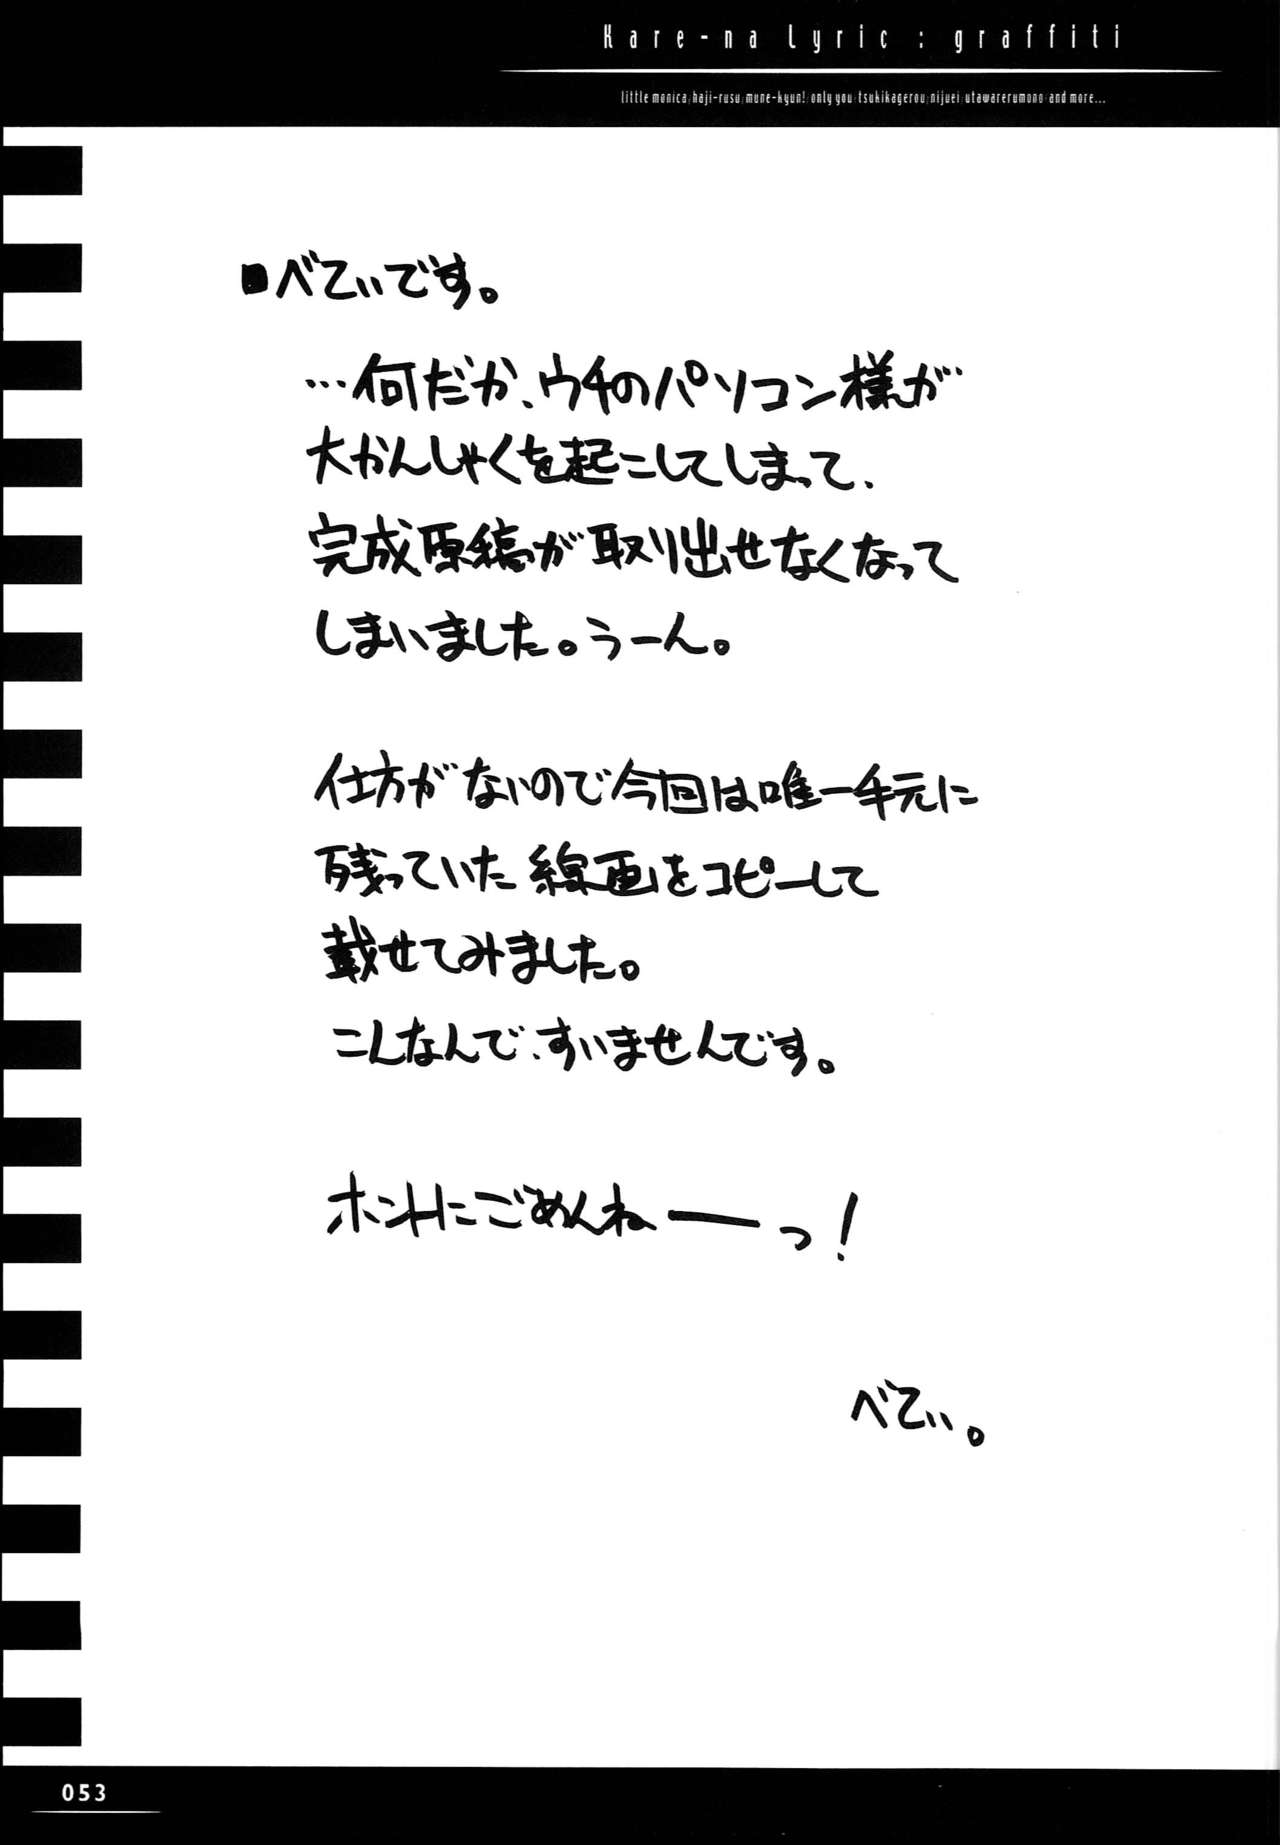 Kare-na Lyric : graffiti
little monica, haji-rusu, mune-kyun! only you tsukikagerou, nijuei, utawarerumono and more...
■べてぃです。
…何だか、ウチのパソコン様が
大かんしゃくを起こしてしまって、
完成原稿が取り出せなくなって
しまいました。うーん。
仕方がないので今回は唯一手元に
残っていた線画をコピーして
載せてみました。
こんなんで、すいませんです。
ホントにごめんねーっ!
べてぃ。
053